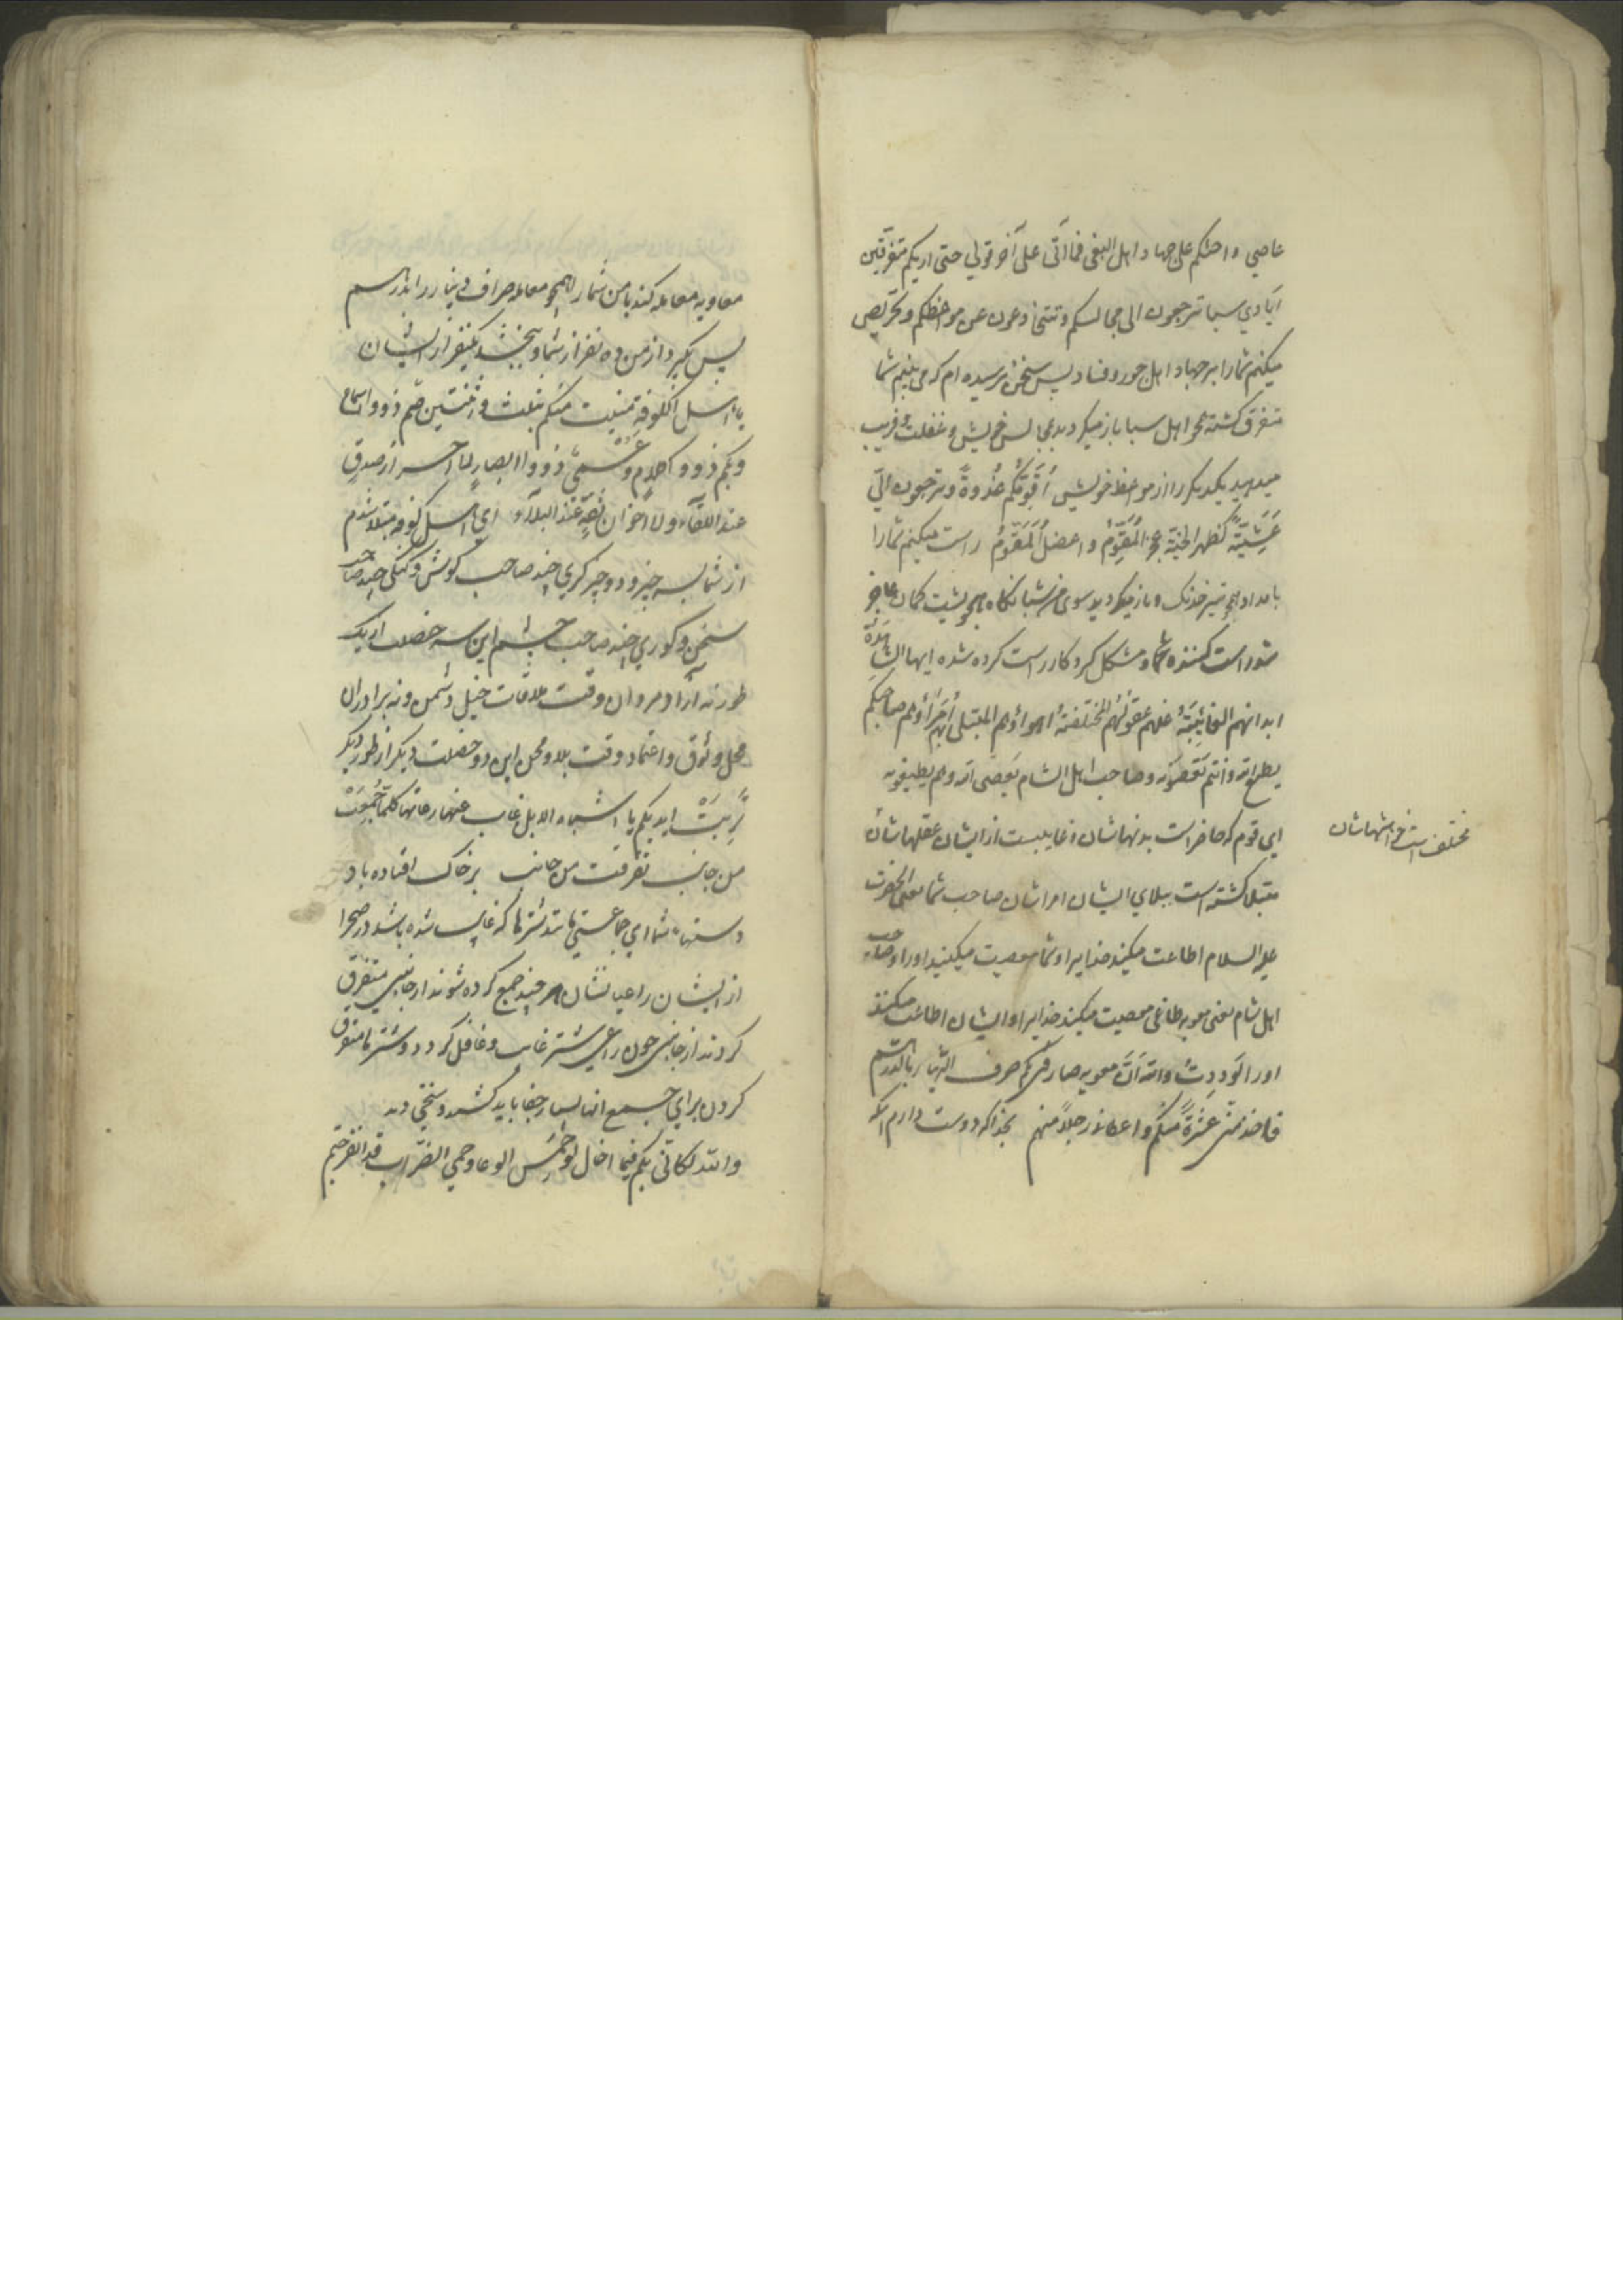 عاصي واحثكم على جهاد اهل البغى فما آتى على آخر قولي حتى اريكم متفرقين
ايادي سبا ترجعون الى مجالسكم وتتخادعون عن مواعظكم وتحريص
ميكنم شما را بر جهاد اهل جور و فساد پس بسخن نرسيده ام كه مى بينم شما
متفرق كشته همچو اهل سبا باز ميكرديد بمجالس خويش و غفلت و فريب
ميدهيد يكديكر را از مواعظ خويش اُقَوِّمُكُم غُدوةً وترجعون اليّ
عَشِيّةً كظهر الحنيّة عجز المُقَوِّمُ واعضلُ المُقَوَّمُ راست ميكنم شما را
بامداد همچو تير خدنك و باز ميكرديد سوى من شبانكاه همچو پشت كمان عاجز
شد راست كننده شما و مشكل كرد كار راست كرده شده ايها الشاهدة
ابدانهم الغائبة عنهم عقولهم المختلفة اهواؤهم المبتلى بهم امراؤهم صاحبكم
يطيع الله وانتم تعصونه وصاحب اهل الشام يعصى الله وهم يطيعونه
اى قوم كه حاضر است بدنهاشان و غايبست از ايشان عقلهاشان
مختلف است خواهشهاشان
مبتلا كشته است ببلاى ايشان امراشان صاحب شما يعنى الحضرت
عليه السلام اطاعت ميكند خدايرا و شما معصيت ميكنيد او را و صاحب
اهل شام يعنى معويه طاغى معصيت ميكند خدايرا و ايشان اطاعت ميكنند
او را لوددت والله انّ معويه صارفنى بكم صرف الدينار بالدرهم
فاخذ منى عشرةً منكم واعطانى رجلاً منهم بخدا كه دوست دارم آنكه
معاويه معامله كند با من شما را همچو معامله صراف دينار را بدرهم
پس بكيرد از من ده نفر از شما و ببخشد يكنفر از ايشان
يا اهل الكوفة منيت منكم بثلث واثنتين صمّ ذوو اسماع
وبكم ذوو كلام وعُمْىٌ ذوو ابصار لا احرار صدق
عند اللقاء ولا اخوان ثقة عند البلاء اى اهل كوفه مبتلا شدم
از شما بسه چيز و دو چيز كرى چند صاحب كوش و كنكى چند صاحب
سخن و كورى چند صاحب چشم اين سه خصلت از يك
طور نه آزاد مردان وقت ملاقات خيل دشمن و نه برادران
محل وثوق و اعتماد وقت بلا و محن اين دو خصلت ديكر از طور ديكر
تَرِبَتْ ايديكم يا اشباه الابل غاب عنها رعاتها كلما جُمِعَتْ
من جانب تفرقت من جانب بر خاك افتاده باد
دستهاء شما اى جماعتى مانند شترها كه غايب شده باشد در صحرا
از ايشان راعيانشان هر چند جمع كرده شوند از جانبى متفرق
كردند از جانبى چون راعى شتر غايب و غافل كردد و شترها متفرق
كردن براى جمع انها بسيار جفا بايد كشيد و سختى ديد
والله لكانّى بكم فيما اخال لو حمس الوغا وحمى الضراب قد انفرجتم